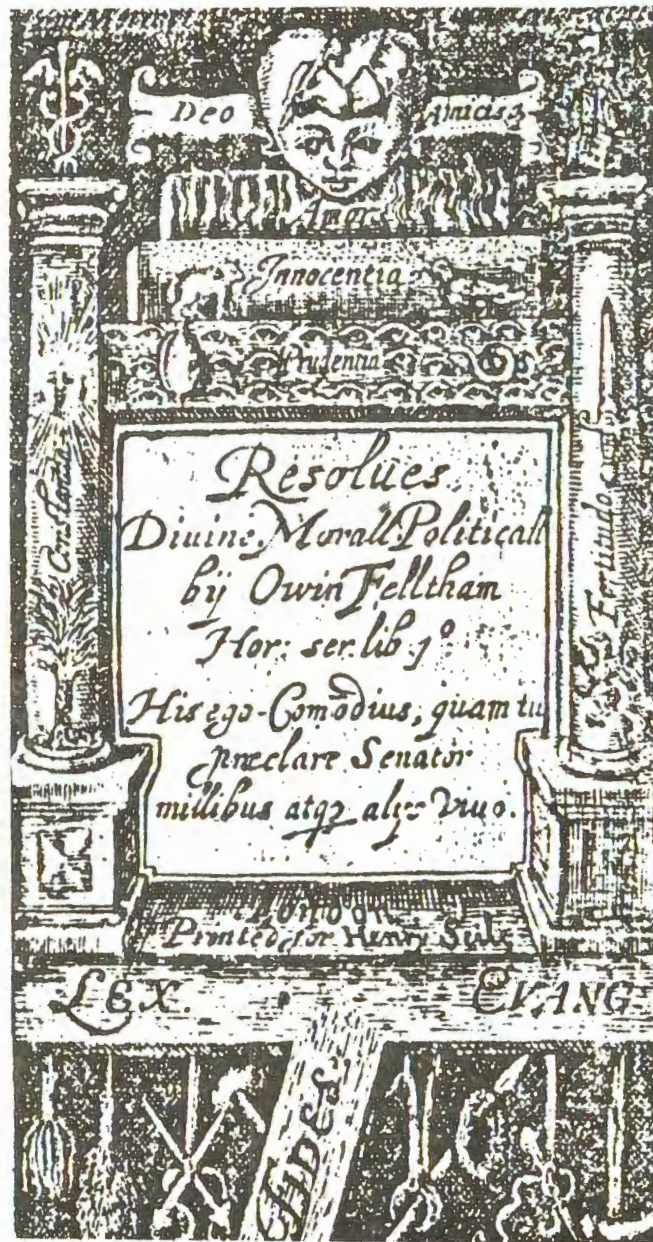 Deo Amicis
Amor
Innocentia
Prudentia
Constantia
Fortitudo
Resolues
Diuine, Morall, Politicall
by Owin Felltham
Hor: ser. lib. 1º
His ego Com̄odius, quam tu
præclare Senator
millibus atqꝫ alijs viuo.
London
Printed for Henry Seile
LEX. EVANG
FIDES